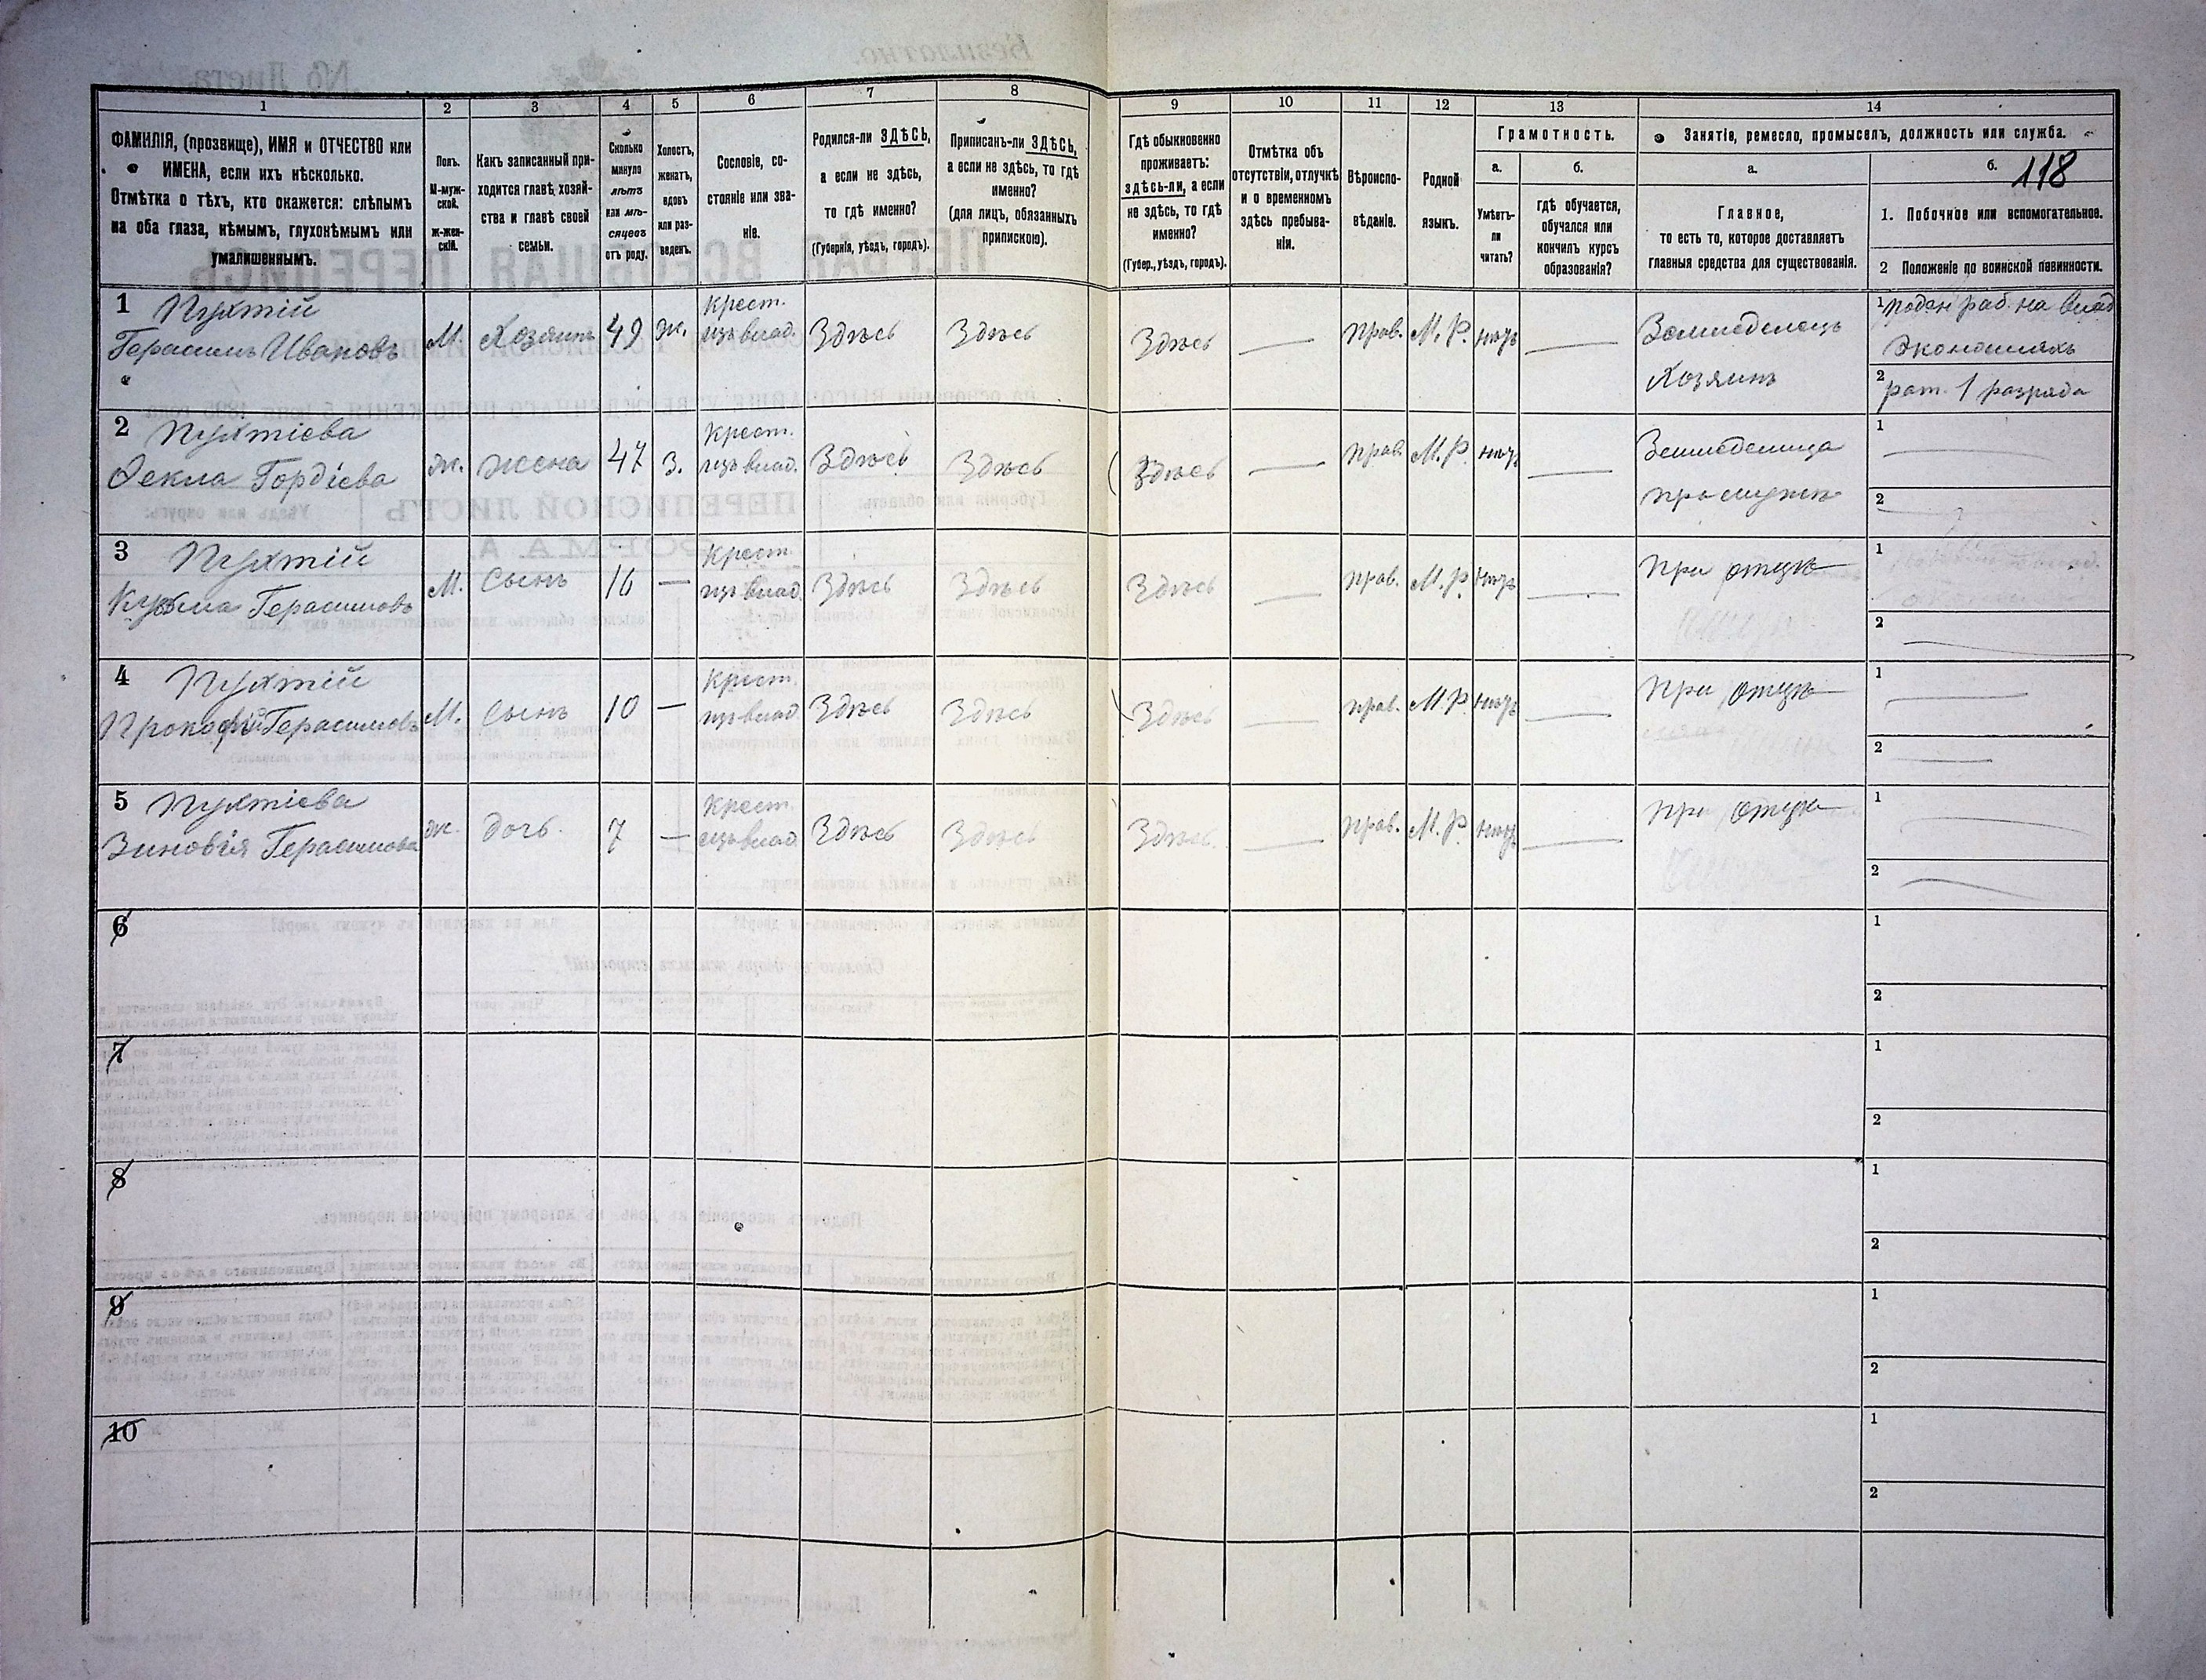 1 2 3 4 5 6 7 8 9 10 11 12 13 14
ФАМИЛІЯ, (прозвище), ИМЯ и ОТЧЕСТВО или
ИМЕНА, если ихъ нѣсколько.
Отмѣтка о тѣхъ, кто окажется: слѣпымъ
на оба глаза, нѣмымъ, глухонѣмымъ или
умалишеннымъ.
Полъ.
М-муж-
ской.
ж-жен-
скій.
Какъ записанный при-
ходится главѣ хозяй-
ства и главѣ своей
семьи.
Сколько
минуло
лѣтъ
или мѣ-
сяцевъ
отъ роду.
Холостъ,
женатъ,
вдовъ
или раз-
веденъ.
Сословіе, со-
стояніе или зва-
ніе.
Родился-ли ЗДѢСЬ,
а если не здѣсь,
то гдѣ именно?
(Губернія, уѣздъ, городъ).
Приписанъ-ли ЗДѢСЬ,
а если не здѣсь, то гдѣ
именно?
(для лицъ, обязанныхъ
припискою).
Гдѣ обыкновенно
проживаетъ:
здѣсь-ли, а если
не здѣсь, то гдѣ
именно?
(Губер., уѣздъ, городъ).
Отмѣтка объ
отсутствіи, отлучкѣ
и о временномъ
здѣсь пребыва-
ніи.
Вѣроиспо-
вѣданіе.
Родной
языкъ.
Грамотность.
а.
Умѣетъ-
ли
читать?
б.
гдѣ обучается,
обучался или
кончилъ курсъ
образованія?
Занятіе, ремесло, промыселъ, должность или служба.
а.
Главное,
то есть то, которое доставляетъ
главныя средства для существованія.
б.
118
1. Побочное или вспомогательное.
2 Положеніе по воинской повинности.
1 Пухтій
Герасимъ Ивановъ
М.
Хозяинъ
49
ж.
Крест.
изъ влад.
Здѣсь
Здѣсь
Здѣсь
—
прав.
М. Р.
нѣтъ
—
Земледѣлецъ
Хозяинъ
1 поден. раб. на влад
Экономіяхъ
2 рат. 1 разряда
2 Пухтіева
Ѳекла Гордіева
ж.
жена
47
з.
Крест.
изъ влад.
Здѣсь
Здѣсь
Здѣсь
—
прав.
М. Р.
нѣтъ
—
Земледѣлица
при мужѣ
1 —
2 —
3 Пухтій
Кузьма Герасимовъ
М.
Сынъ
16
—
Крест
изъ влад.
Здѣсь
Здѣсь
Здѣсь
—
прав.
М. Р.
нѣтъ
—
При отцѣ
1
2 —
4 Пухтій
Прокофій Герасимовъ
М.
Сынъ
10
—
Крест.
изъ влад
Здѣсь
Здѣсь
Здѣсь
—
прав.
М. Р.
нѣтъ
—
При отцѣ
1 —
2 —
5 Пухтіева
Зиновія Герасимова
ж.
дочь.
7
—
Крест.
изъ влад.
Здѣсь
Здѣсь
Здѣсь.
—
прав.
М. Р.
нѣтъ
—
при отцѣ
1 —
2 —
6
1
2
7
1
2
8
1
2
9
1
2
10
1
2